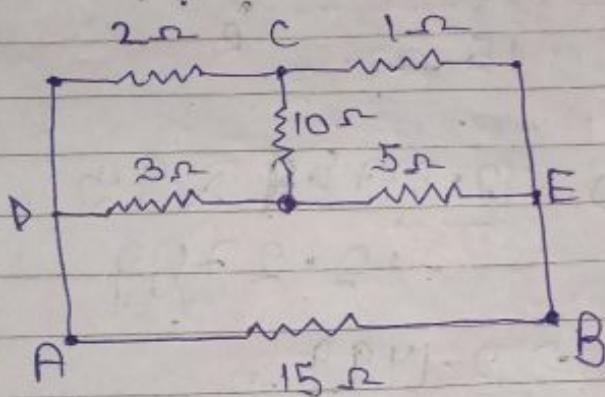 2Ω C 1Ω
10Ω
3Ω 5Ω
D E
A B
15Ω